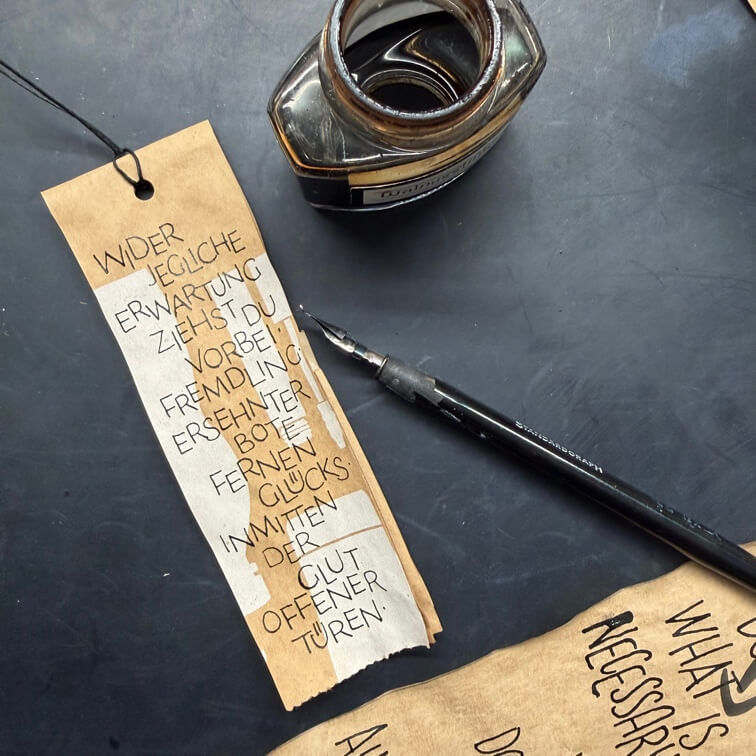 WIDER
JEGLICHE
ERWARTUNG
ZIEHST DU
VORBEI,
FREMDLING
ERSEHNTER
BOTE
FERNEN
GLÜCKS.
INMITTEN
DER
GLUT
OFFENER
TÜREN.
STANDARDGRAPH
WHAT IS
NECESSAR
DO